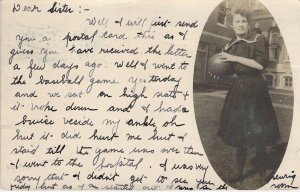 Dear Sister:-
Well I will just send
you a postal card this as I
guess you have received the letter
a few days ago: Well I went to
the baseball game yesterday
and we sat on high seats &
it broke down and I had a
bruise beside my ankle oh
but it did hurt me but I
staid till the game was over then
I went to the hospital. I was very
sorry that I didn't get to see the
but as I am